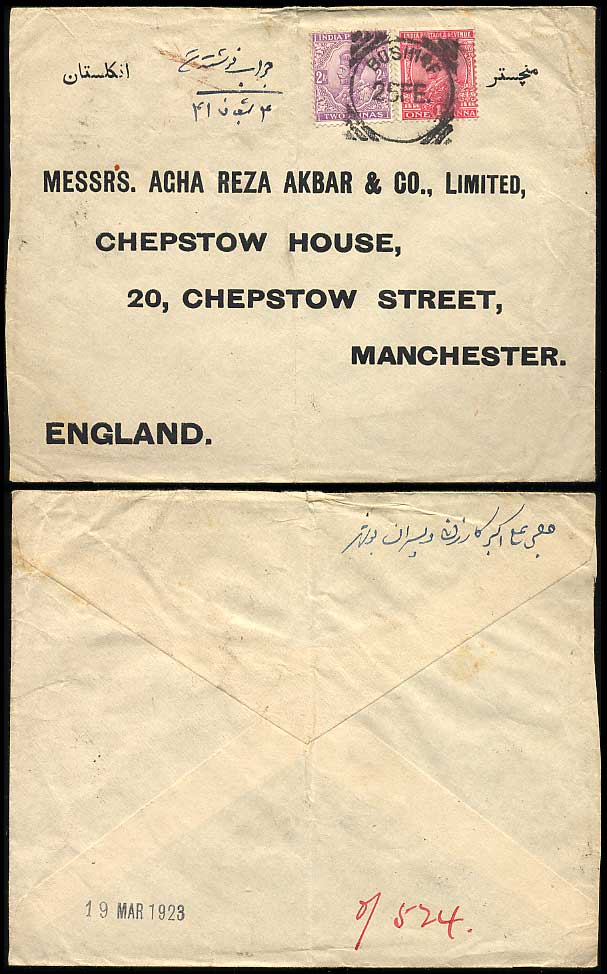 انگلستان
جواب نوشته شد
منچستر
INDIA P
2 As
TWO ANNAS
INDIA POSTAGE & REVENUE
ONE ANNA
BUSHIRE
25 FE
MESSRS. AGHA REZA AKBAR & CO., LIMITED,
CHEPSTOW HOUSE,
20, CHEPSTOW STREET,
MANCHESTER.
ENGLAND.
علی اکبر و پسران بوشهر
19 MAR 1923
of 524.